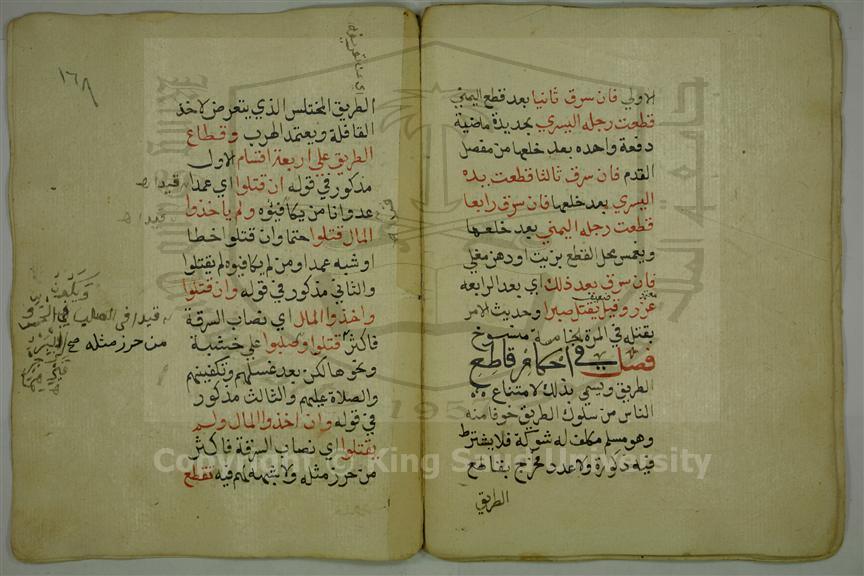 الاولي فان سرق ثانيا بعد قطع اليمني
قطعت رجله اليسري بحديدة ماضية
دفعة واحده بعد خلعها من مفصل
القدم فان سرق ثالثا قطعت يده
اليسري بعد خلعها فان سرق رابعا
قطعت رجله اليمني بعد خلعها
ويغمس محل القطع بزيت او دهن مغلي
فان سرق بعد ذلك اي بعد الرابعه
عزر وقيل يقتل صبرا وحديث الامر
بقتله في المرة الخامسة منسوخ
فصل في احكام قاطع
الطريق ويسمي بذلك لامتناع
الناس من سلوك الطريق خوفا منه
وهو مسلم مكلف له شوكة فلا يشترط
فيه ذكورة ولا عدد فخرج بقاطع
الطريق
١٦٨
الطريق المختلس الذي يتعرض لاخذ
القافلة ويعتمد الهرب وقطاع
الطريق علي اربعة اقسام الاول
مذكور في قوله ان قتلوا اي عمدا
عدوانا من يكافئوه ولم ياخذوا
المال قتلوا حتما وان قتلوا خطا
او شبه عمد او من لم يكافئوه لم يقتلوا
والثاني مذكور في قوله وان قتلوا
واخذوا المال اي نصاب السرقة
فاكثر قتلوا وصلبوا علي خشبة
ونحوها لكن بعد غسلهم وتكفينهم
والصلاة عليهم والثالث مذكور
في قوله وان اخذوا المال ولم
يقتلوا اي نصاب السرقة فاكثر
من حرز مثله ولا شبهة لهم فيه تقطع
قيد
قيد
من حرز مثله صح
Copyright © King Saud University
195